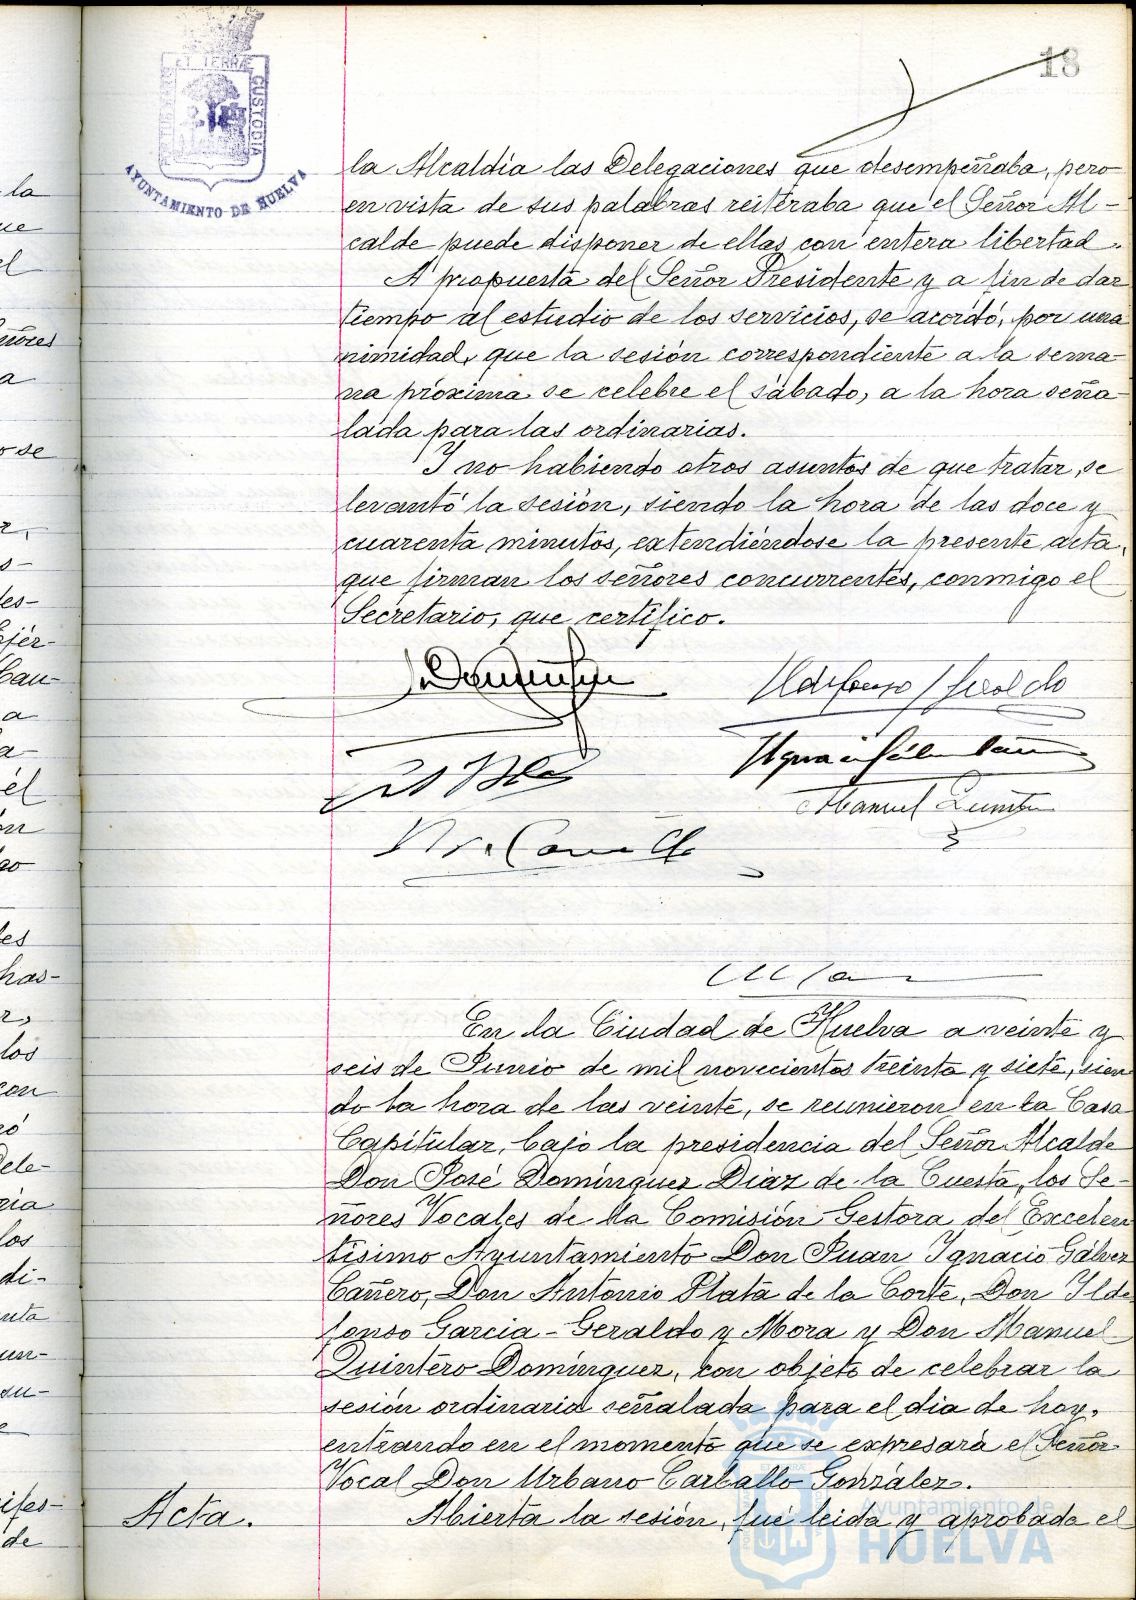 18
PORTUS
ET TERRÆ
CUSTODIA
AYUNTAMIENTO DE HUELVA
la Alcaldía las Delegaciones que desempeñaba, pero
en vista de sus palabras reiteraba que el Señor Al-
calde puede disponer de ellas con entera libertad.
A propuesta del Señor Presidente y a fin de dar
tiempo al estudio de los servicios, se acordó, por una
nimidad, que la sesión correspondiente a la sema
na próxima se celebre el sábado, a la hora seña-
lada para las ordinarias.
Y no habiendo otros asuntos de que tratar, se
levantó la sesión, siendo la hora de las doce y
cuarenta minutos, extendiéndose la presente acta,
que firman los señores concurrentes, conmigo el
Secretario, que certifico.
Ildefonso Geraldo
Manuel Quintero
En la Ciudad de Huelva a veinte y
seis de Junio de mil novecientos treinta y siete, sien
do la hora de las veinte, se reunieron en la Casa
Capitular, bajo la presidencia del Señor Alcalde
Don José Domínguez Díaz de la Cuesta, los Se-
ñores Vocales de la Comisión Gestora del Excelen
tísimo Ayuntamiento Don Juan Ignacio Gálvez
Cañero, Don Antonio Plata de la Corte, Don Ilde
fonso García-Geraldo y Mora y Don Manuel
Quintero Domínguez, con objeto de celebrar la
sesión ordinaria señalada para el día de hoy,
entrando en el momento que se expresará el Señor
Vocal Don Urbano Carballo González.
Acta.
Abierta la sesión, fué leida y aprobada el
Ayuntamiento de
HUELVA